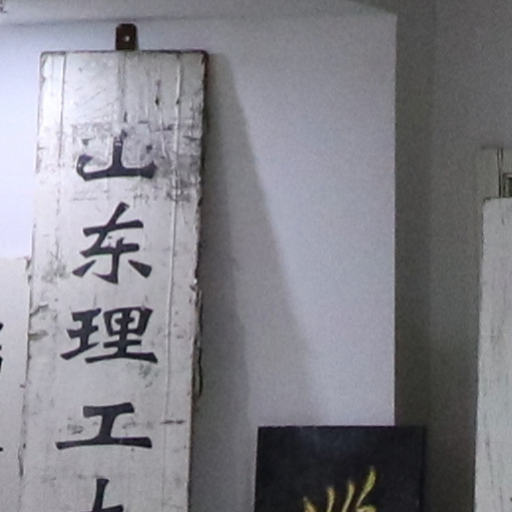 山东理工